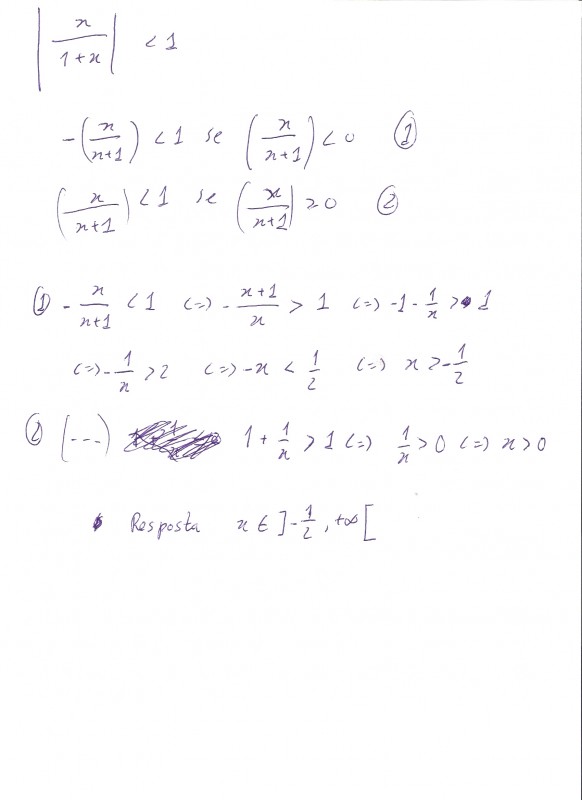 |x/(1+x)| < 1
-(x/(x+1)) < 1 se (x/(x+1)) < 0 ①
(x/(x+1)) < 1 se (x/(x+1)) ≥ 0 ②
① -x/(x+1) < 1 (=) -(x+1)/x > 1 (=) -1-1/x > 1
(=) -1/x > 2 (=) -x < 1/2 (=) x > -1/2
② (---) 1+1/x > 1 (=) 1/x > 0 (=) x > 0
Resposta x ∈ ]-1/2, +∞[